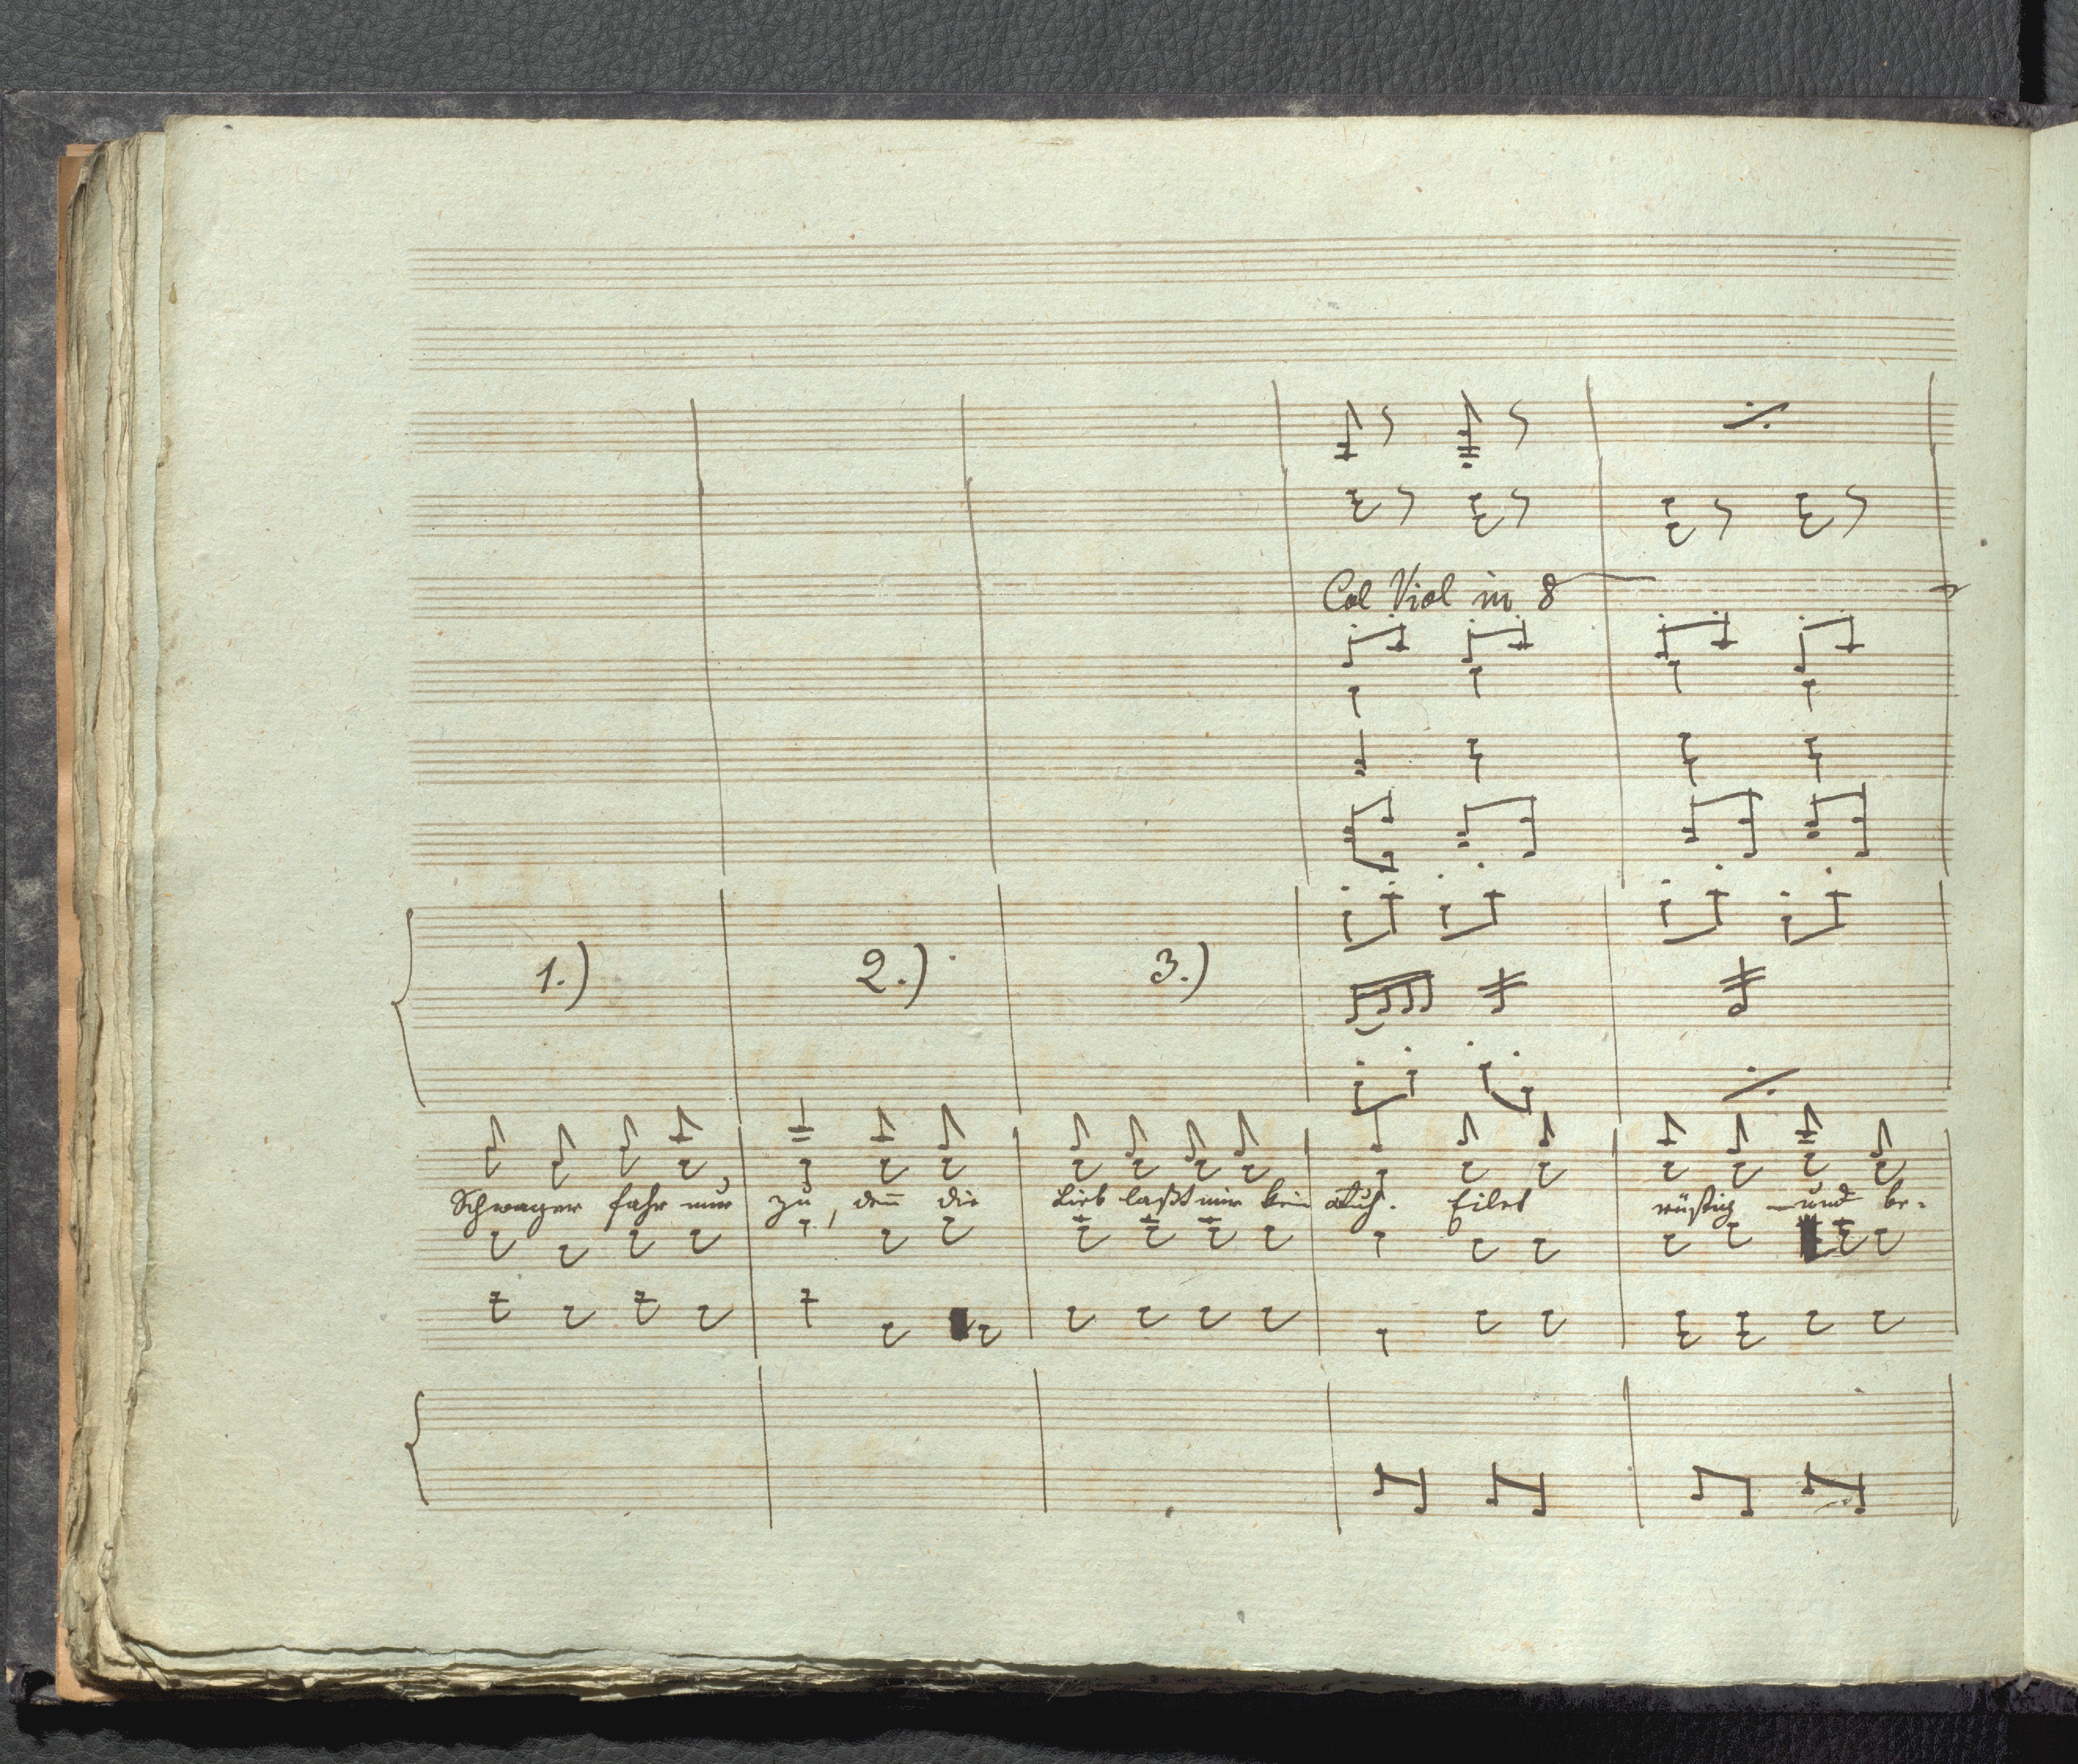 Col Viol in 8
1.) 2.) 3.)
Schwager fahr nur zu, den̄ die Lieb laßt mir kein Ruh. Eilet rüstig und be-